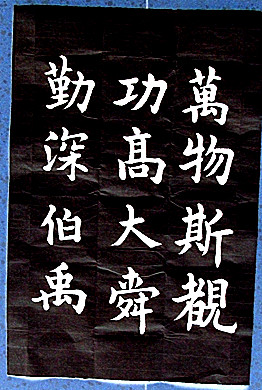 萬物斯覩
功髙大舜
勤深伯禹